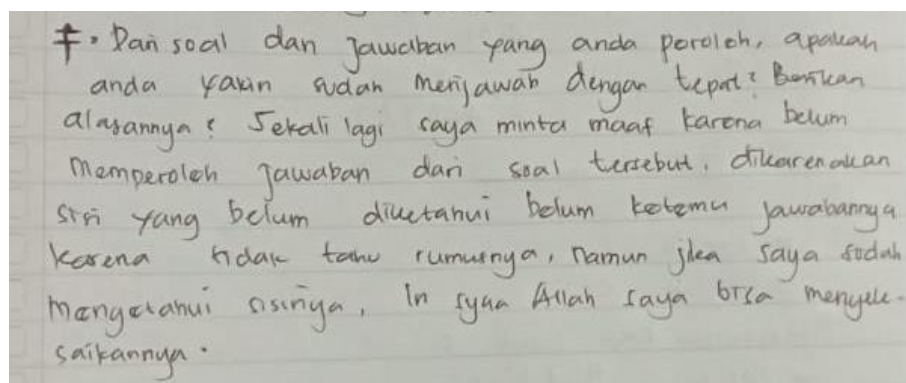 F. Dari soal dan jawaban yang anda peroleh, apakah
anda yakin sudah menjawab dengan tepat? Berikan
alasannya? Sekali lagi saya minta maaf karena belum
memperoleh jawaban dari soal tersebut, dikarenakan
sisi yang belum diketahui belum ketemu jawabannya
karena tidak tahu rumusnya, namun jika saya sudah
mengetahui sisinya, In syaa Allah saya bisa menyele-
saikannya.